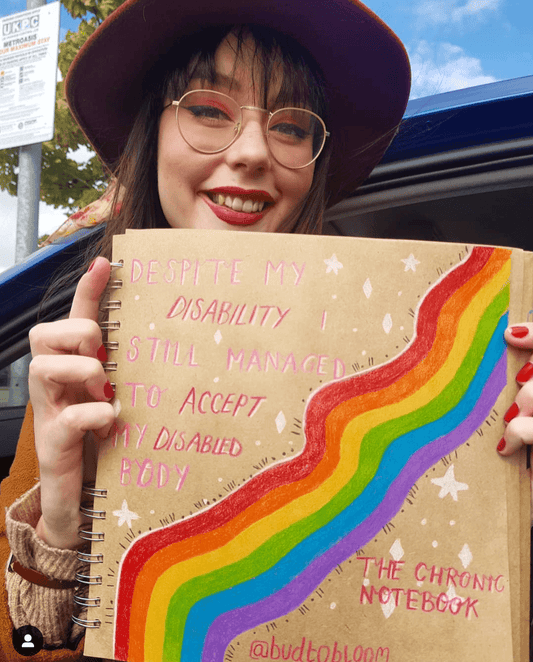 UKPC
METROASIS
OUR MAXIMUM STAY
DESPITE MY
DISABILITY I
STILL MANAGED
TO ACCEPT
MY DISABLED
BODY
THE CHRONIC
NOTEBOOK
@budtobloom